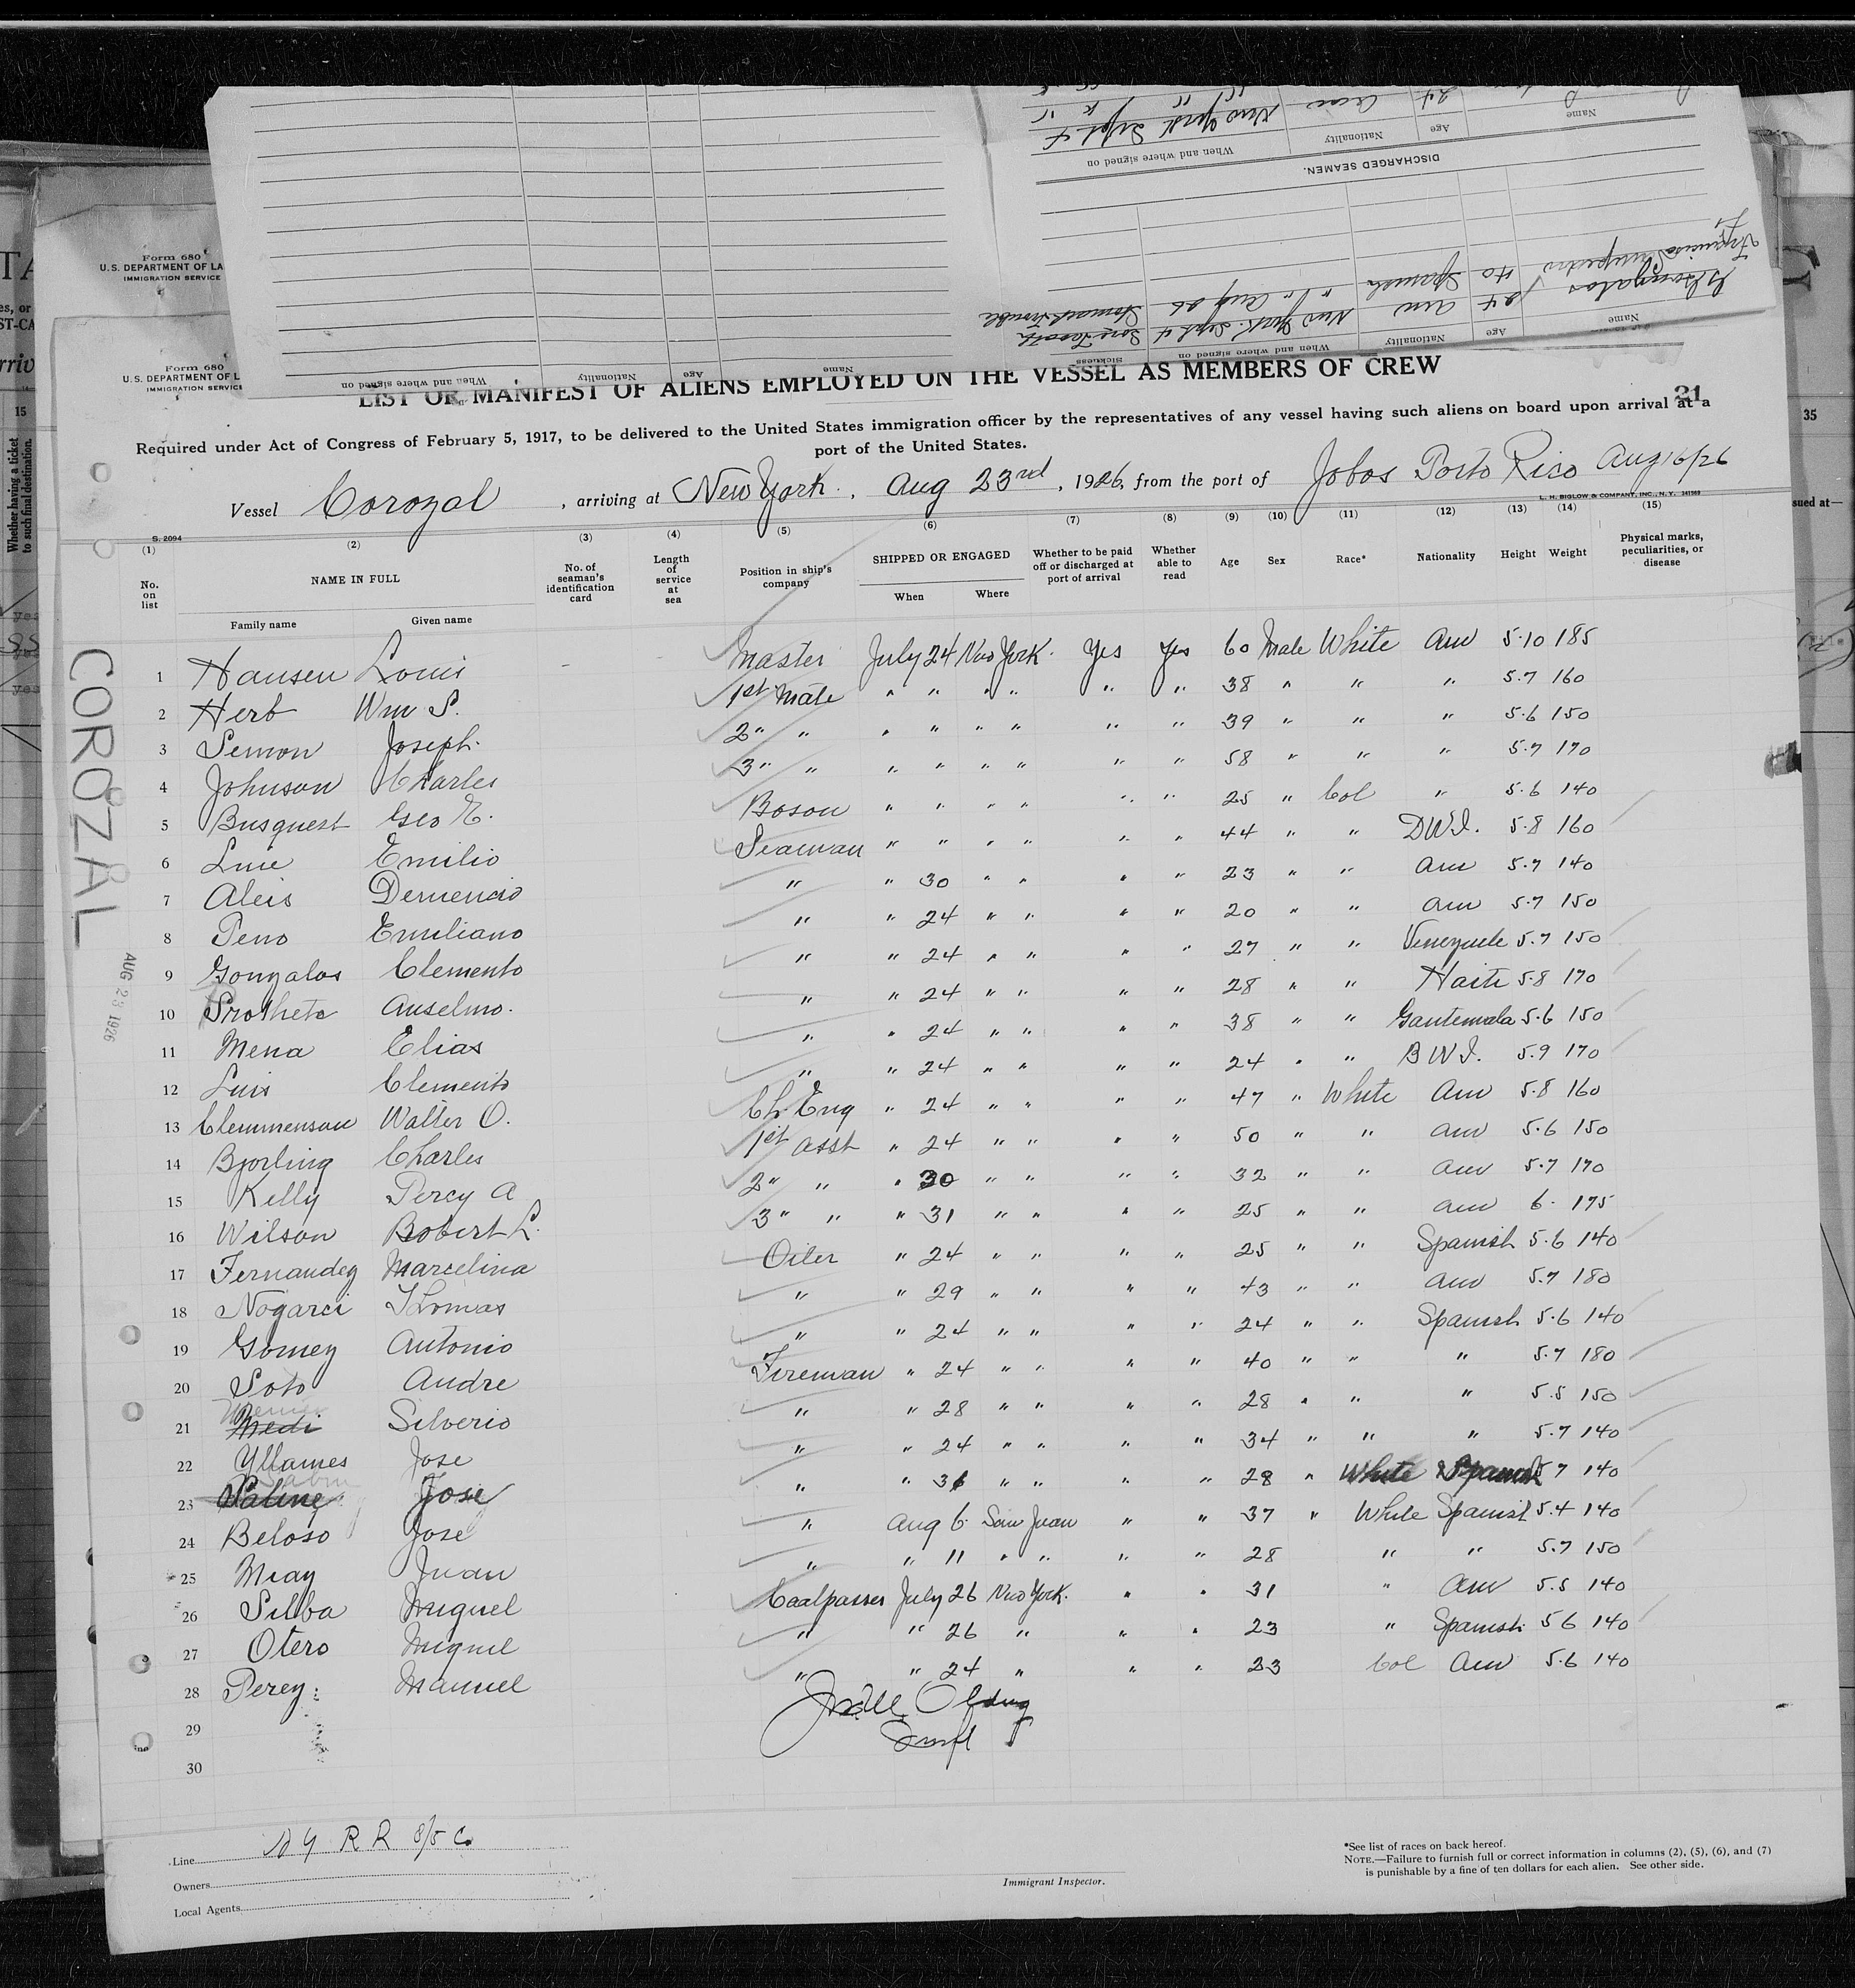 Form 680
U.S. DEPARTMENT OF LA
IMMIGRATION SERVICE
Form 680
U. S. DEPARTMENT OF L
IMMIGRATION SERVICE
DISCHARGED SEAMEN.
Name Age Nationality When and where signed on
24 New York Sept 4
Name Age Nationality When and where signed on Sickness
24 Am New York Sept 4
40 Spanish Aug 26 Stomach Trouble
Name Age Nationality When and where signed on
LIST OR MANIFEST OF ALIENS EMPLOYED ON THE VESSEL AS MEMBERS OF CREW
21
Required under Act of Congress of February 5, 1917, to be delivered to the United States immigration officer by the representatives of any vessel having such aliens on board upon arrival at a
port of the United States.
Vessel Corozal, arriving at New York, Aug 23rd, 1926, from the port of Jobos Porto Rico Aug 16/26
L. H. BIGLOW & COMPANY, INC., N. Y. 241569
S. 2094
(1) (2) (3) (4) (5) (6) (7) (8) (9) (10) (11) (12) (13) (14) (15)
No. on list NAME IN FULL No. of seaman's identification card Length of service at sea Position in ship's company SHIPPED OR ENGAGED Whether to be paid off or discharged at port of arrival Whether able to read Age Sex Race* Nationality Height Weight Physical marks, peculiarities, or disease
Family name Given name When Where
1 Hansen Louis Master July 24 New York Yes Yes 60 Male White Am 5·10 185
2 Herb Wm S. 1st Mate " " " " " " 38 " " " 5·7 160
3 Semon Joseph 2" " " " " " " " 39 " " " 5·6 150
4 Johnson Charles 3" " " " " " " " 58 " " " 5·7 170
5 Busquest Geo E. Boson " " " " " " 25 " Col " 5·6 140
6 Luie Emilio Seaman " " " " " " 44 " " DWI. 5·8 160
7 Aleis Demencio " " 30 " " " " 23 " " Am 5·7 140
8 Peno Emiliano " " 24 " " " " 20 " " Am 5·7 150
9 Gonzalos Clemento " " 24 " " " " 27 " " Venezuele 5·7 150
10 Protheto Anselmo. " " 24 " " " " 28 " " Haiti 5·8 170
11 Mena Elias " " 24 " " " " 38 " " Gautemala 5·6 150
12 Luis Clemento " " 24 " " " " 24 " " BWI. 5·9 170
13 Clemmenson Walter O. Ch. Eng " 24 " " " " 47 " White Am 5·8 160
14 Bjorling Charles 1st asst " 24 " " " " 50 " " Am 5·6 150
15 Kelly Percy A 2" " " 30 " " " " 32 " " Am 5·7 170
16 Wilson Robert L. 3" " " 31 " " " " 25 " " Am 6· 175
17 Fernandez Marcelina Oiler " 24 " " " " 25 " " Spanish 5·6 140
18 Nogarci Thomas " " 29 " " " " 43 " " Am 5·7 180
19 Gomez Antonio " " 24 " " " " 24 " " Spanish 5·6 140
20 Soto Andre Fireman " 24 " " " " 40 " " " 5·7 180
21 Medi Silverio " " 28 " " " " 28 " " " 5·5 150
22 Yllames Jose " " 24 " " " " 34 " " " 5·7 140
23 Jose " " 31 " " " " 28 " White Spanish 5 7 140
24 Beloso Jose " Aug 6 San Juan " " 37 " White Spanish 5·4 140
25 Miay Juan " " 11 " " " " 28 " " 5·7 150
26 Silba Miguel Coalpasser July 26 New York. " " 31 " Am 5·5 140
27 Otero Miguel " " 26 " " " 23 " Spanish 5 6 140
28 Perez Manuel " " 24 " " " 23 Col Am 5·6 140
29
30
COROZAL
AUG 23 1926
Line N Y R R S/S Co
Owners
Local Agents
Immigrant Inspector.
*See list of races on back hereof.
NOTE.—Failure to furnish full or correct information in columns (2), (5), (6), and (7)
is punishable by a fine of ten dollars for each alien. See other side.
15
Whether having a ticket
to such final destination.
35
sued at—